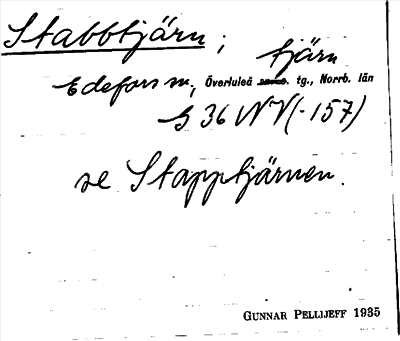 Stabbtjärn; tjärn
Edefors sn, Överluleå tg., Norrb. län
G 36 NV (-157)
se Stapptjärnen.
GUNNAR PELLIJEFF 1935